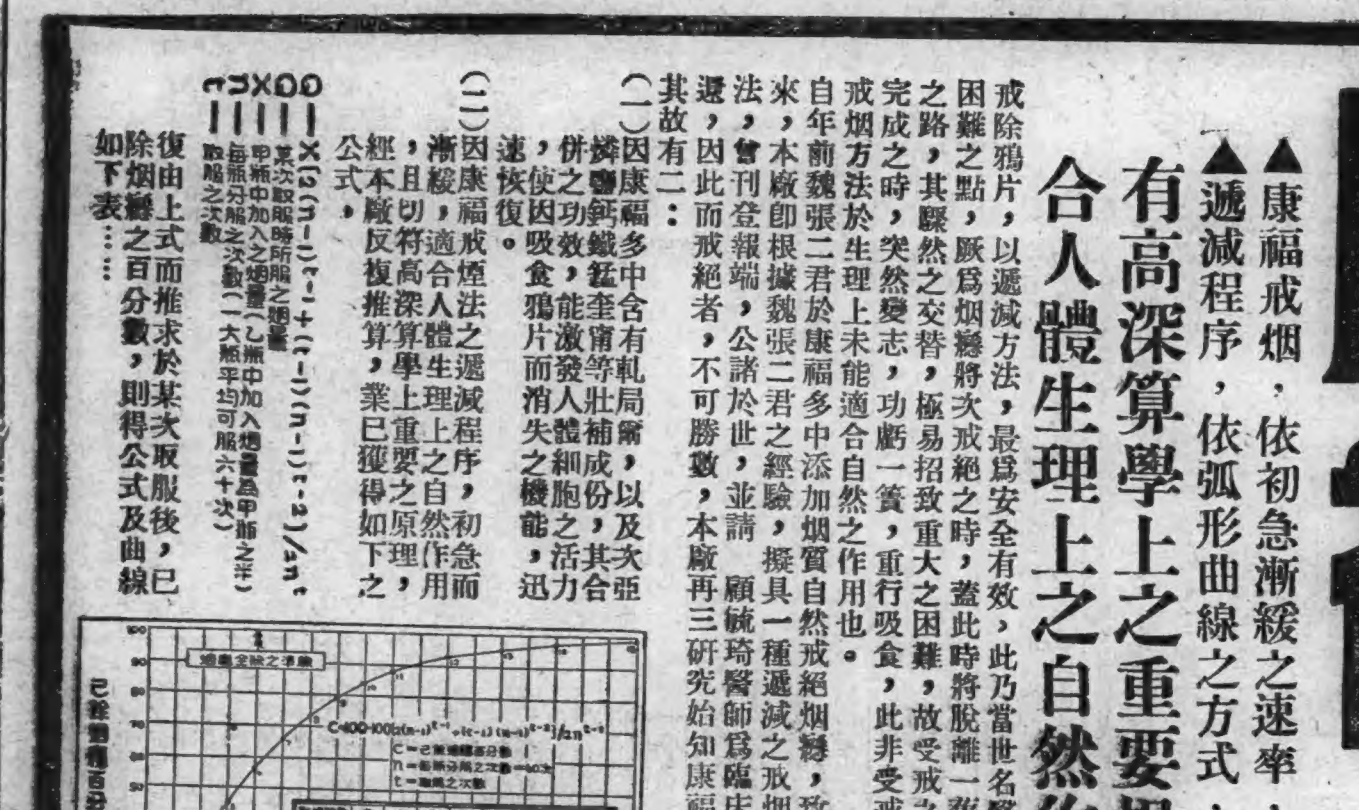 ▲康福戒烟，依初急漸緩之速率
▲遞減程序，依弧形曲線之方式
有高深算學上之重要
合人體生理上之自然
戒除鴉片，以遞減方法，最爲安全有效，此乃當世名醫
困難之點，厥爲烟癮將次戒絕之時，蓋此時將脫離一
之路，其驟然之交替，極易招致重大之困難，故受戒
完成之時，突然變志，功虧一簣，重行吸食，此非受戒
戒烟方法於生理上未能適合自然之作用也。
自年前魏張二君於康福多中添加烟質自然戒絕烟癮，致
來，本廠卽根據魏張二君之經驗，擬具一種遞減之戒烟
法，曾刊登報端，公諸於世，並請 顧毓琦醫師爲臨床
還，因此而戒絕者，不可勝數，本廠再三硏究始知康福
其故有二：
（一）因康福多中含有軋局爾，以及次亞
燐鹽鈣鐵錳奎甯等壯補成份，其合
併之功效，能激發人體細胞之活力
，使因吸食鴉片而消失之機能，迅
速恢復。
（二）因康福戒煙法之遞減程序，初急而
漸緩，適合人體生理上之自然作用
，且切符高深算學上重要之原理，
經本廠反複推算，業已獲得如下之
公式，
某次取服時所服之烟量
甲瓶中加入之烟量（乙瓶中加入烟量爲甲瓶之半）
每瓶分服之次數（一大瓶平均可服六十次）
取服之次數
復由上式而推求於某次取服後，已
除烟癮之百分數，則得公式及曲線
如下表……
100
90
80
70
60
50
n=每瓶分服之次數=60次
t=取服之次數